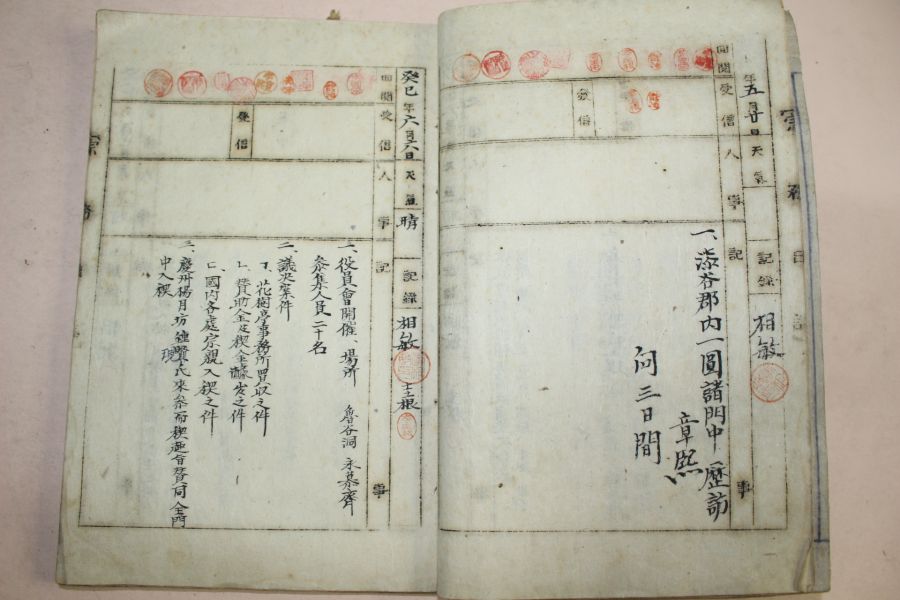 年五月廿日天氣
記錄 相敏
回閱
受信
發信
人事
記事
一、漆谷郡內一圓諸門中歷訪
章熙
向三日間
宗務日記
癸巳年六月六日天氣 晴
記錄 相敏
回閱
受信
發信
人事
記事
一、役員會開催、場所 魯谷洞 永慕齋
參集人員二十名
二、議決案件
花樹亭事務所買收之件
贊助金及稧金據出之件
國內各處宗親入稧之件
三、慶州楊月坊 鍾賢氏來參而稧趣旨贊同仝門
中入稧
宗務